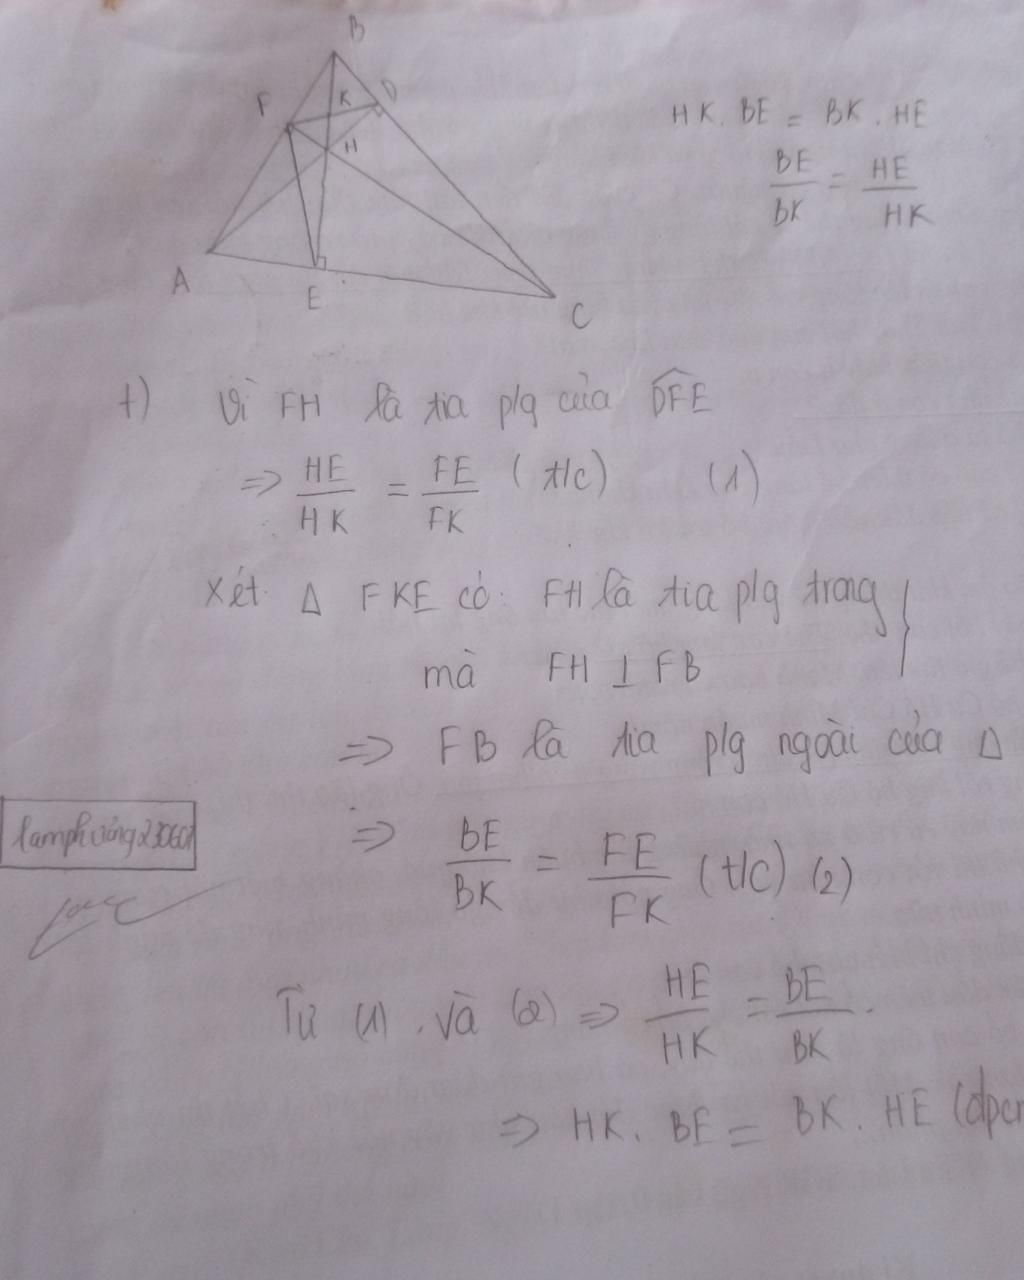 B
F K D
H
A
E
C
HK. BE = BK. HE
BE/BK = HE/HK
f) Vì FH là tia p/g của DFE
=> HE/HK = FE/FK (t/c) (1)
Xét Δ FKE có: FH là tia p/g trong
mà FH ⊥ FB
=> FB là tia p/g ngoài của Δ
=> BE/BK = FE/FK (t/c) (2)
Từ (1) và (2) => HE/HK = BE/BK.
=> HK. BE = BK. HE (đpcm